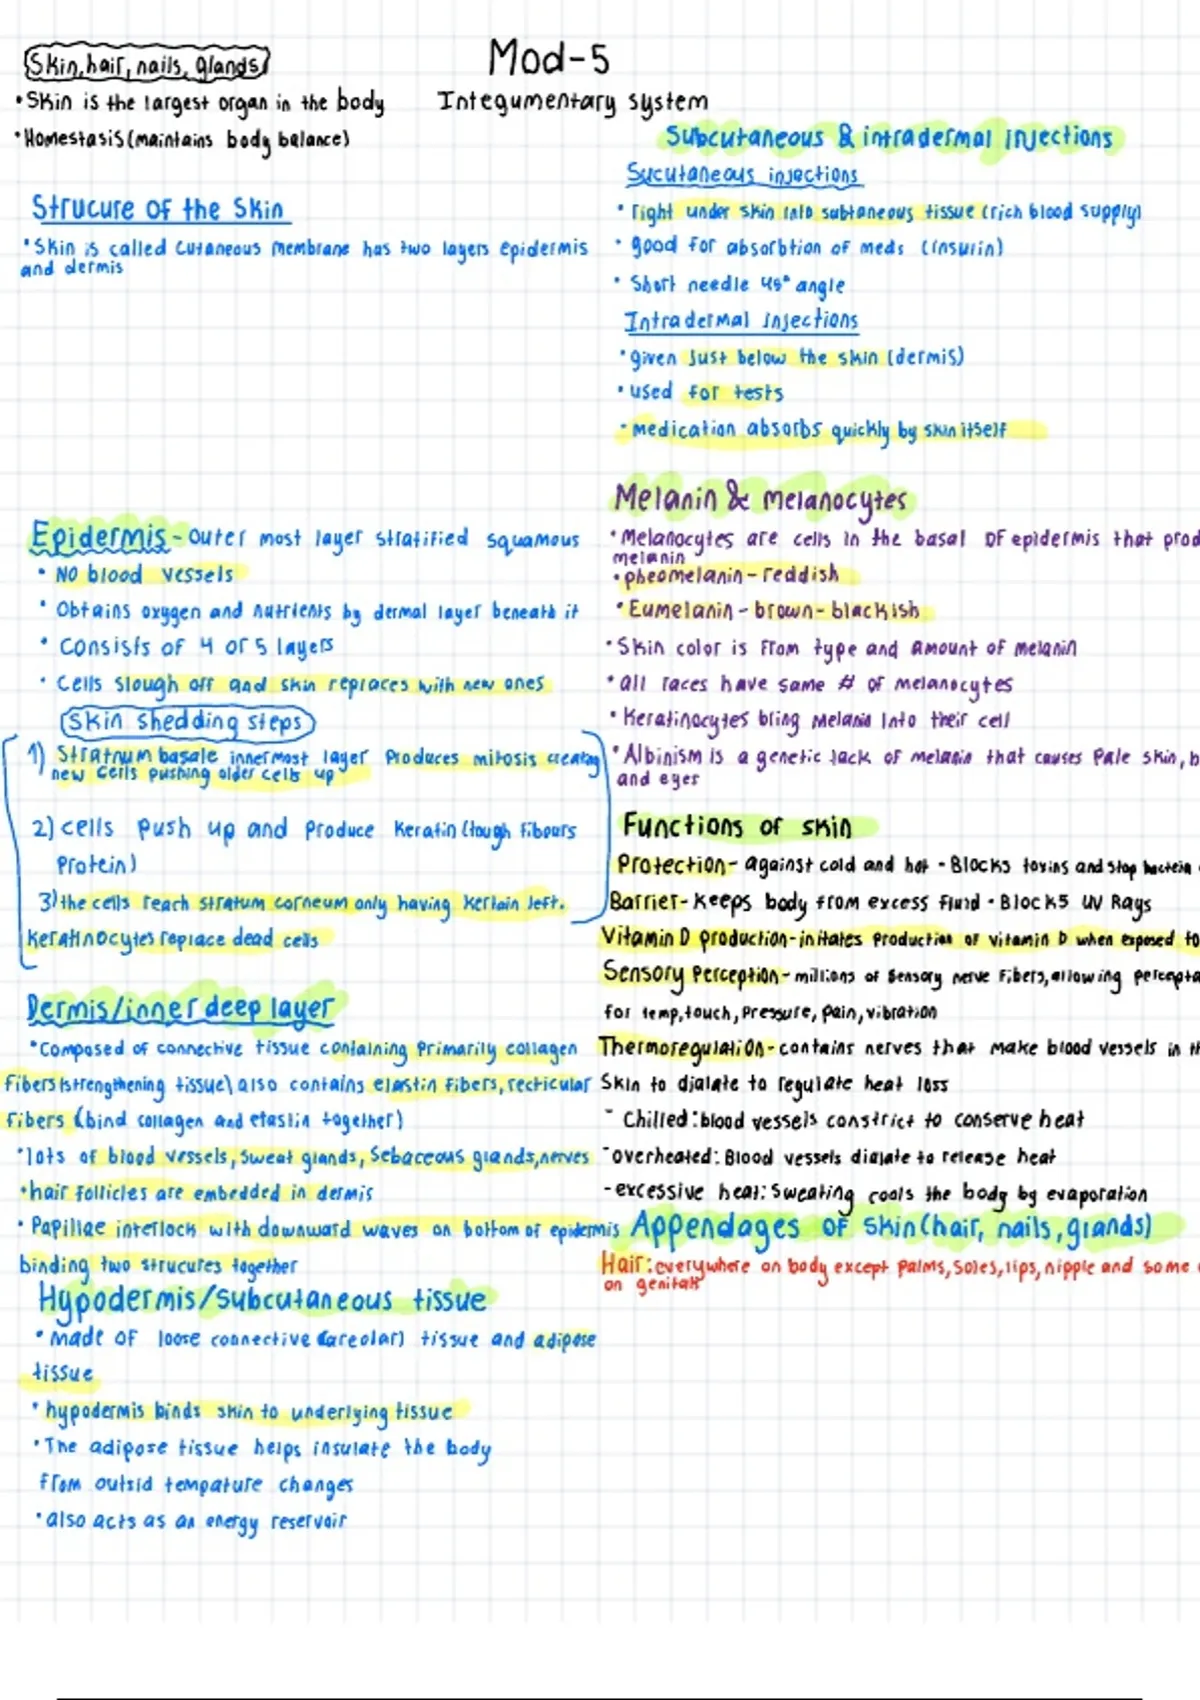 Skin, hair, nails, glands
Mod-5
•Skin is the largest organ in the body
Integumentary system
•Homestasis (maintains body balance)
Strucure of the Skin
•Skin is called cutaneous membrane has two layers epidermis
and dermis
Epidermis - outer most layer stratified squamous
• NO blood vessels
• Obtains oxygen and nutrients by dermal layer beneath it
• Consists of 4 or 5 layers
• Cells slough off and skin replaces with new ones
Skin shedding steps
1) Stratnum basale innermost layer produces mitosis creating
new cells pushing older cells up
2) cells push up and produce keratin (tough fibours
protein)
3) the cells reach stratum corneum only having kertain left.
Keratinocytes replace dead cells
Dermis/inner deep layer
•Composed of connective tissue containing primarily collagen
fibers (strengthening tissue) also contains elastin fibers, recticular
fibers (bind collagen and elastin together)
•lots of blood vessels, sweat glands, sebaceous glands, nerves
•hair follicles are embedded in dermis
• Papillae interlock with downward waves on bottom of epidermis
binding two strucures together
Hypodermis/subcutaneous tissue
• made of loose connective (areolar) tissue and adipose
tissue
• hypodermis binds skin to underlying tissue
•The adipose tissue helps insulate the body
from outsid tempature changes
•also acts as an energy reservoir
Subcutaneous & intradermal injections
Sucutaneous injections
• right under skin into subtaneous tissue (rich blood supply)
• good for absorbtion of meds (insulin)
• Short needle 45° angle
Intradermal injections
•given just below the skin (dermis)
•used for tests
•medication absorbs quickly by skin itself
Melanin & melanocytes
•Melanocytes are cells in the basal of epidermis that prod
melanin
•pheomelanin - reddish
•Eumelanin - brown-blackish
•Skin color is from type and amount of melanin
•all races have same # of melanocytes
•Keratinocytes bring melanin into their cell
•Albinism is a genetic lack of melanin that causes pale skin, h
and eyes
Functions of skin
Protection - against cold and hot - Blocks toxins and stop bacteria
Barrier - keeps body from excess fluid • Blocks UV Rays
Vitamin D production - initates production of vitamin D when exposed to
Sensory perception - millions of sensory nerve fibers, allowing percepta
for temp, touch, pressure, pain, vibration
Thermoregulation - contains nerves that make blood vessels in th
skin to dialate to regulate heat loss
- Chilled: blood vessels constrict to conserve heat
-overheated: Blood vessels dialate to release heat
-excessive heat: sweating cools the body by evaporation
Appendages of skin (hair, nails, glands)
Hair: everywhere on body except palms, soles, lips, nipple and some
on genitals